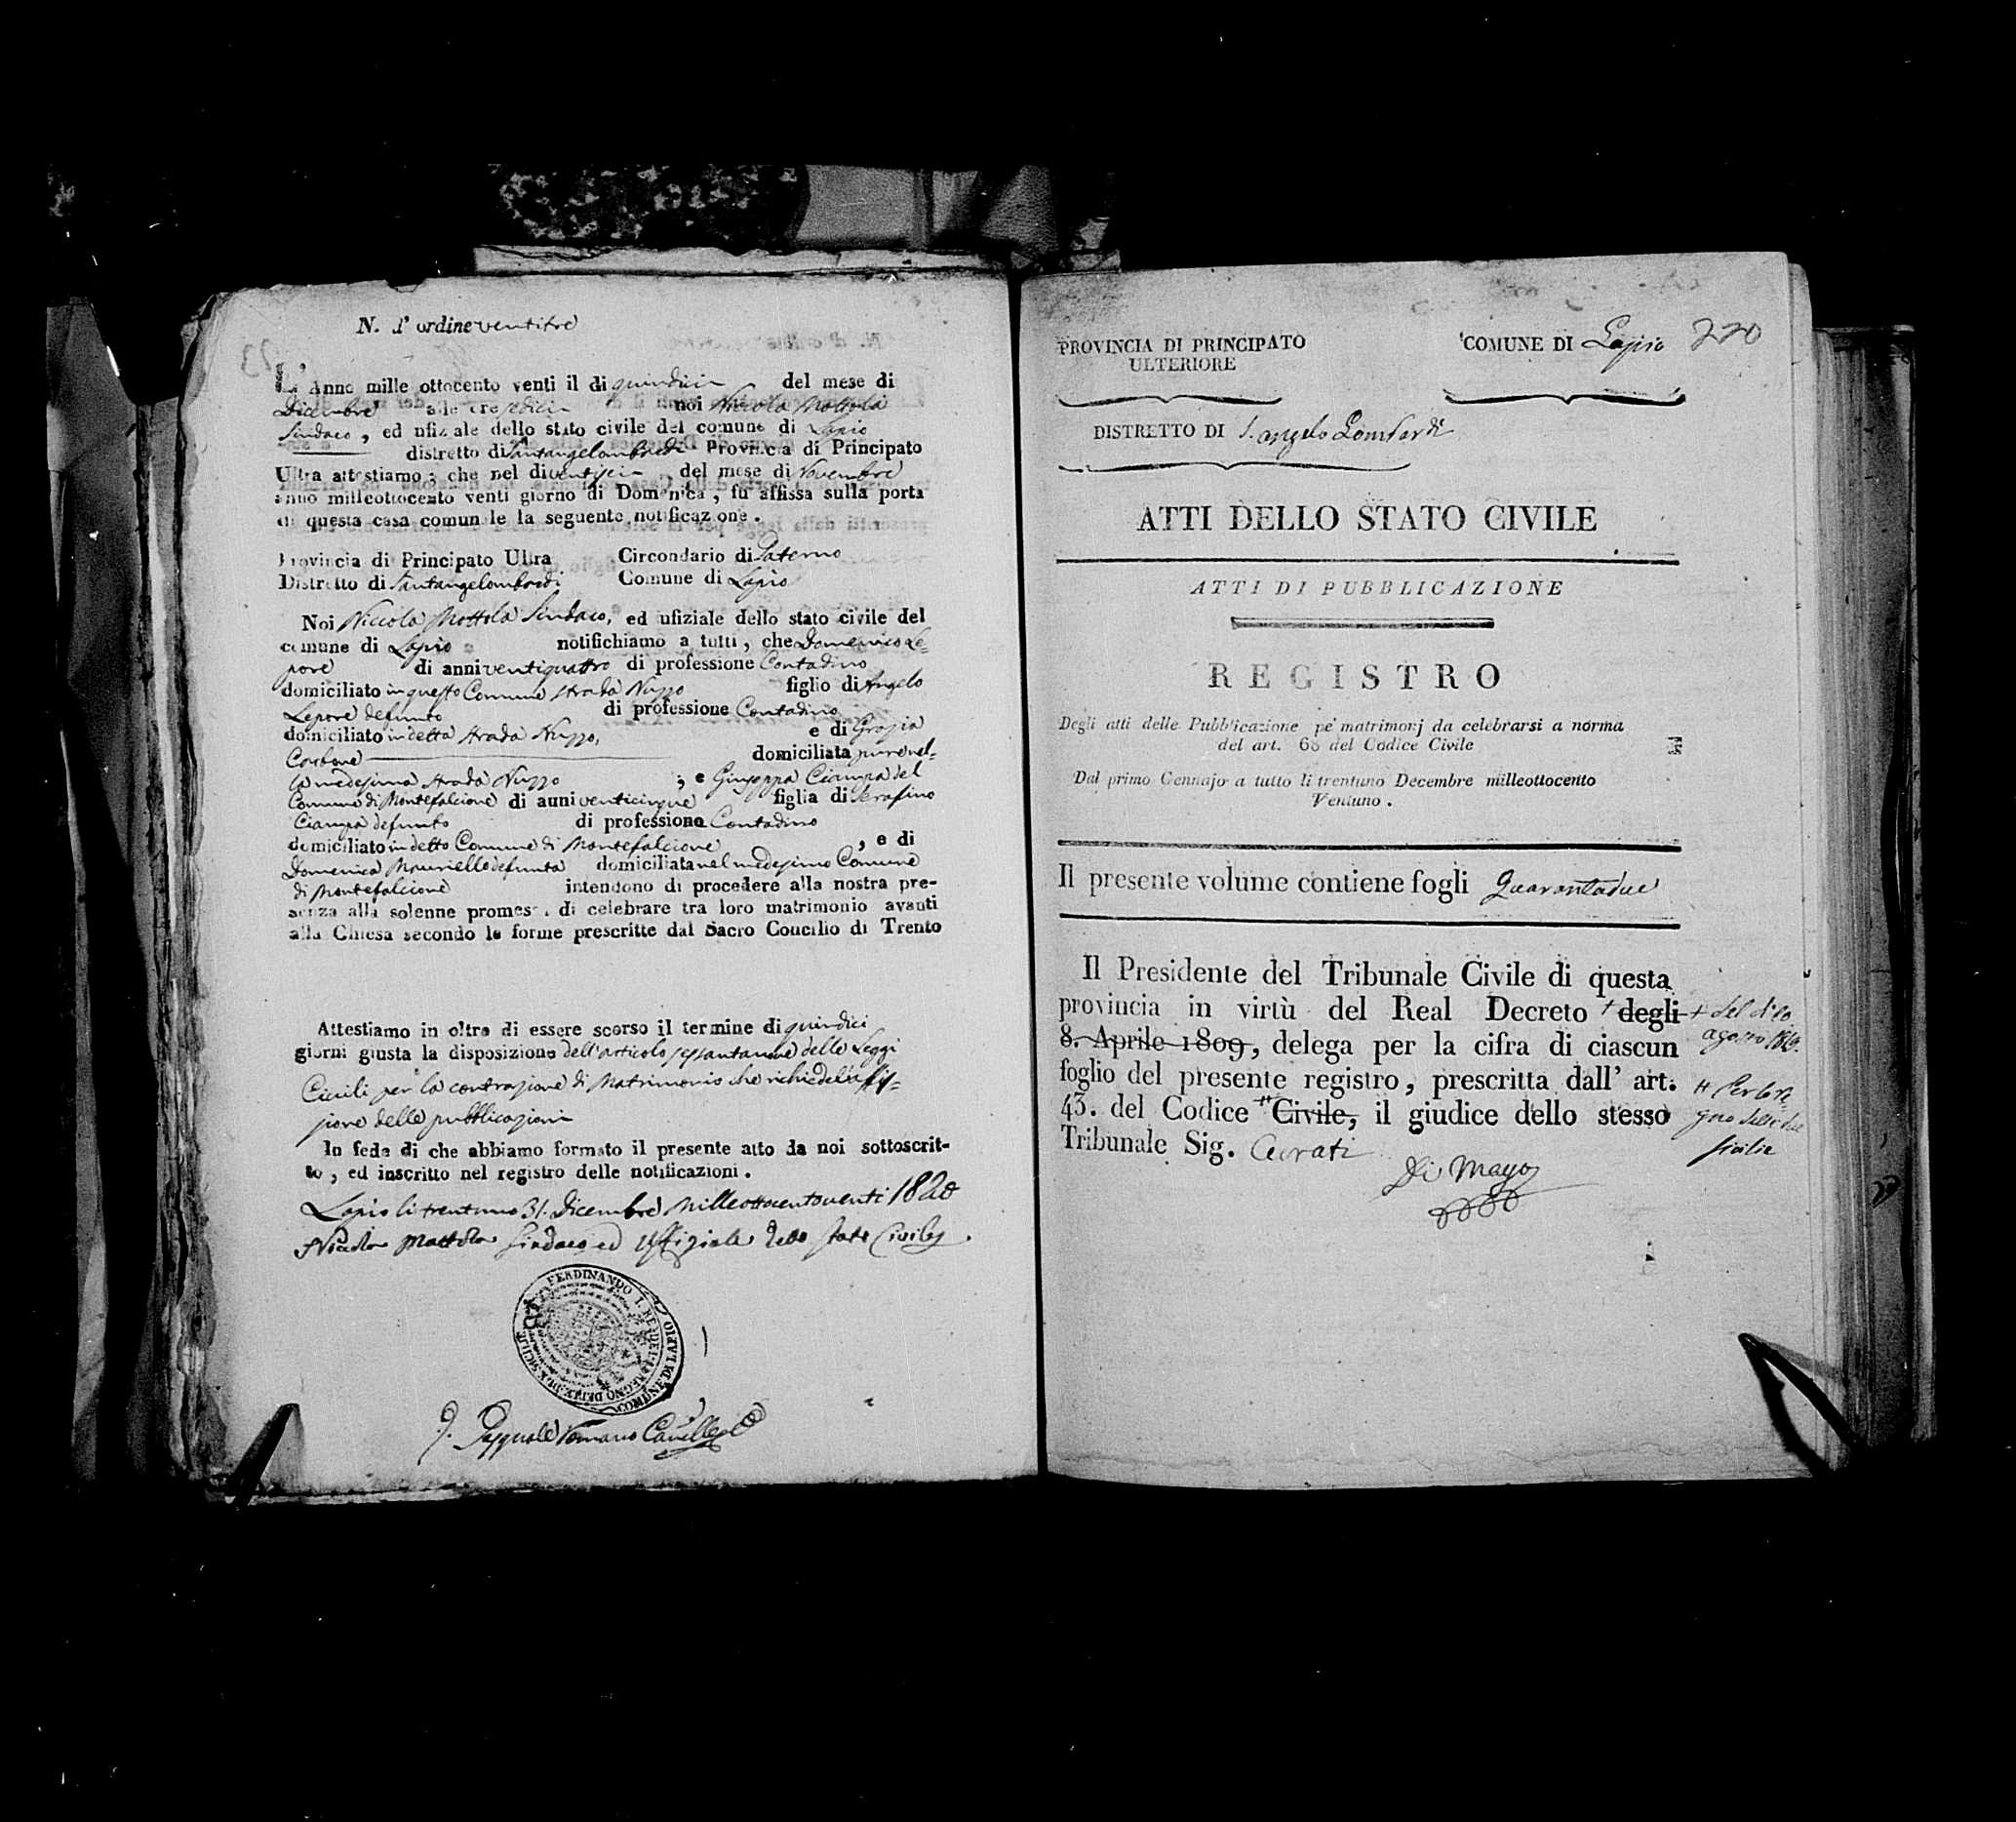 N. d' ordine ventitre
L' Anno mille ottocento venti il di quindici del mese di
Dicembre alle ore sedici noi Niccola Mottola
Sindaco, ed ufiziale dello stato civile del comune di Lapio
distretto di Santangelombardi Provincia di Principato
Ultra attestiamo; che nel di ventisei del mese di Novembre
anno milleottocento venti giorno di Domenica, fu affissa sulla porta
di questa casa comunale la seguente notificazione.
Provincia di Principato Ultra Circondario di Paterno
Distretto di Santangelombardi Comune di Lapio
Noi Niccola Mottola Sindaco, ed ufiziale dello stato civile del
comune di Lapio notifichiamo a tutti, che Domenico Le=
pore di anni ventiquattro di professione Contadino
domiciliato in questo Comune strada Nuzzo figlio di Angelo
Lepore defunto di professione Contadino
domiciliato in detta strada Nuzzo, e di Grazia
Carbone domiciliata pure nel=
la medesima strada Nuzzo ; e Giuseppa Ciampa del
Comune di Montefalcione di anni venticinque figlia di Serafino
Ciampa defunto di professione Contadino
domiciliato in detto Comune di Montefalcione , e di
Domenica Mauriello defunta domiciliata nel medesimo Comune
di Montefalcione intendono di procedere alla nostra pre-
senza alla solenne promessa di celebrare tra loro matrimonio avanti
alla Chiesa secondo le forme prescritte dal Sacro Concilio di Trento
Attestiamo in oltre di essere scorso il termine di quindici
giorni giusta la disposizione dell'articolo sessantanove delle Leggi
Civili per la contrazione di Matrimonio che richiede l'affis=
sione delle pubblicazioni
In fede di che abbiamo formato il presente atto da noi sottoscrit-
to, ed inscritto nel registro delle notificazioni.
Lapio li trentuno 31. Dicembre Milleottocentoventi 1820
Nicola Mottola Sindaco ed Uffiziale dello stato Civile
FERDINANDO I. RE DEL REGNO DELLE DUE SICILIE
COMUNE DI LAPIO
Pasquale Romano Cancelle
PROVINCIA DI PRINCIPATO
ULTERIORE
COMUNE DI Lapio 220
DISTRETTO DI S. Angelo Lombardi
ATTI DELLO STATO CIVILE
ATTI DI PUBBLICAZIONE
REGISTRO
Degli atti delle Pubblicazione pe' matrimonj da celebrarsi a norma
del art. 63 del Codice Civile
Dal primo Gennajo a tutto li trentuno Decembre milleottocento
Ventuno.
Il presente volume contiene fogli Quarantadue
Il Presidente del Tribunale Civile di questa
provincia in virtù del Real Decreto + degli
8. Aprile 1809, delega per la cifra di ciascun
foglio del presente registro, prescritta dall' art.
43. del Codice Civile, il giudice dello stesso
Tribunale Sig. Cerati
Di Mayo
+ del di
agosto
Per lo re
gno delle due
Sicilie